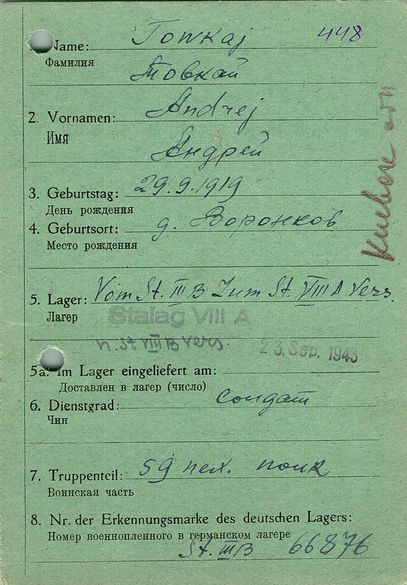 1. Name: Towkaj 448
Фамилия
Товкай
2. Vornamen: Andrej
Имя
Андрей
3. Geburtstag: 29.9.1919
День рождения
4. Geburtsort: д. Воронков
Место рождения
Киевск обл
5. Lager: Vom St. III B Zum St. VIII A Vers.
Лагерь
Stalag VIII A
n. St VIII B Vers.
23. Sep. 1943
5a. Im Lager eingeliefert am:
Доставлен в лагерь (число)
6. Dienstgrad: солдат
Чин
7. Truppenteil: 59 пех. полк
Воинская часть
8. Nr. der Erkennungsmarke des deutschen Lagers:
Номер военнопленного в германском лагере
St. III B 66876